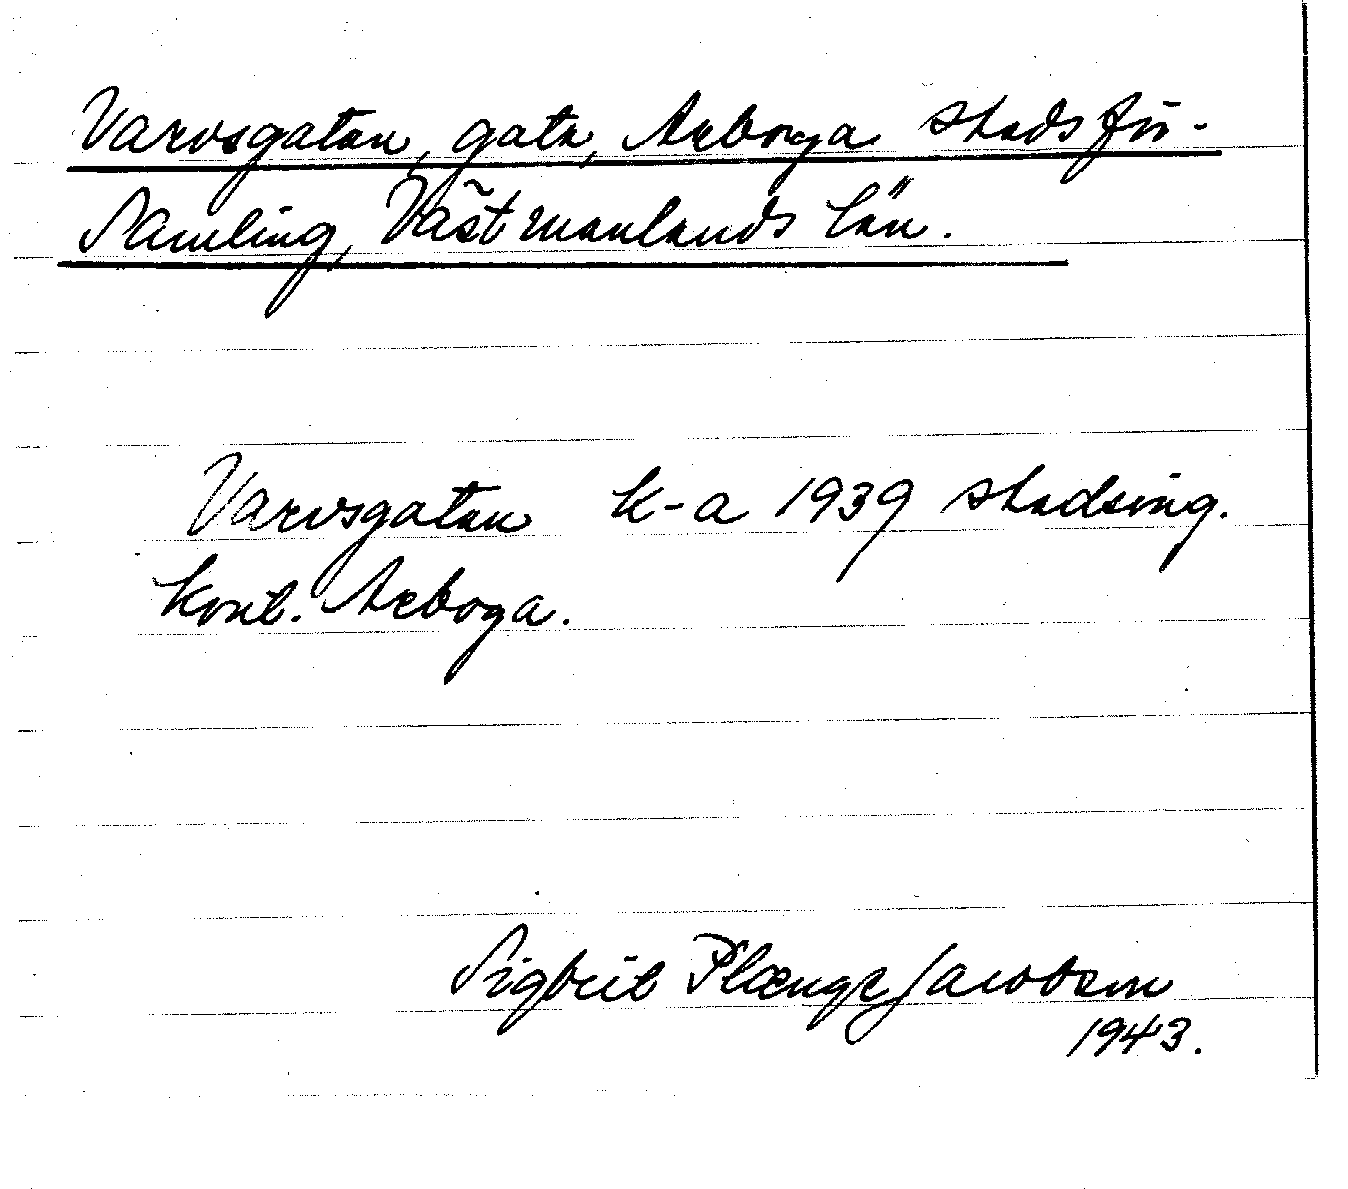 Varvsgatan, gata, Arboga stadsför-
samling, Västmanlands län.
Varvsgatan k-a 1939 stadsing.
kont. Arboga.
Sigbrit Plænge Jacobson
1943.